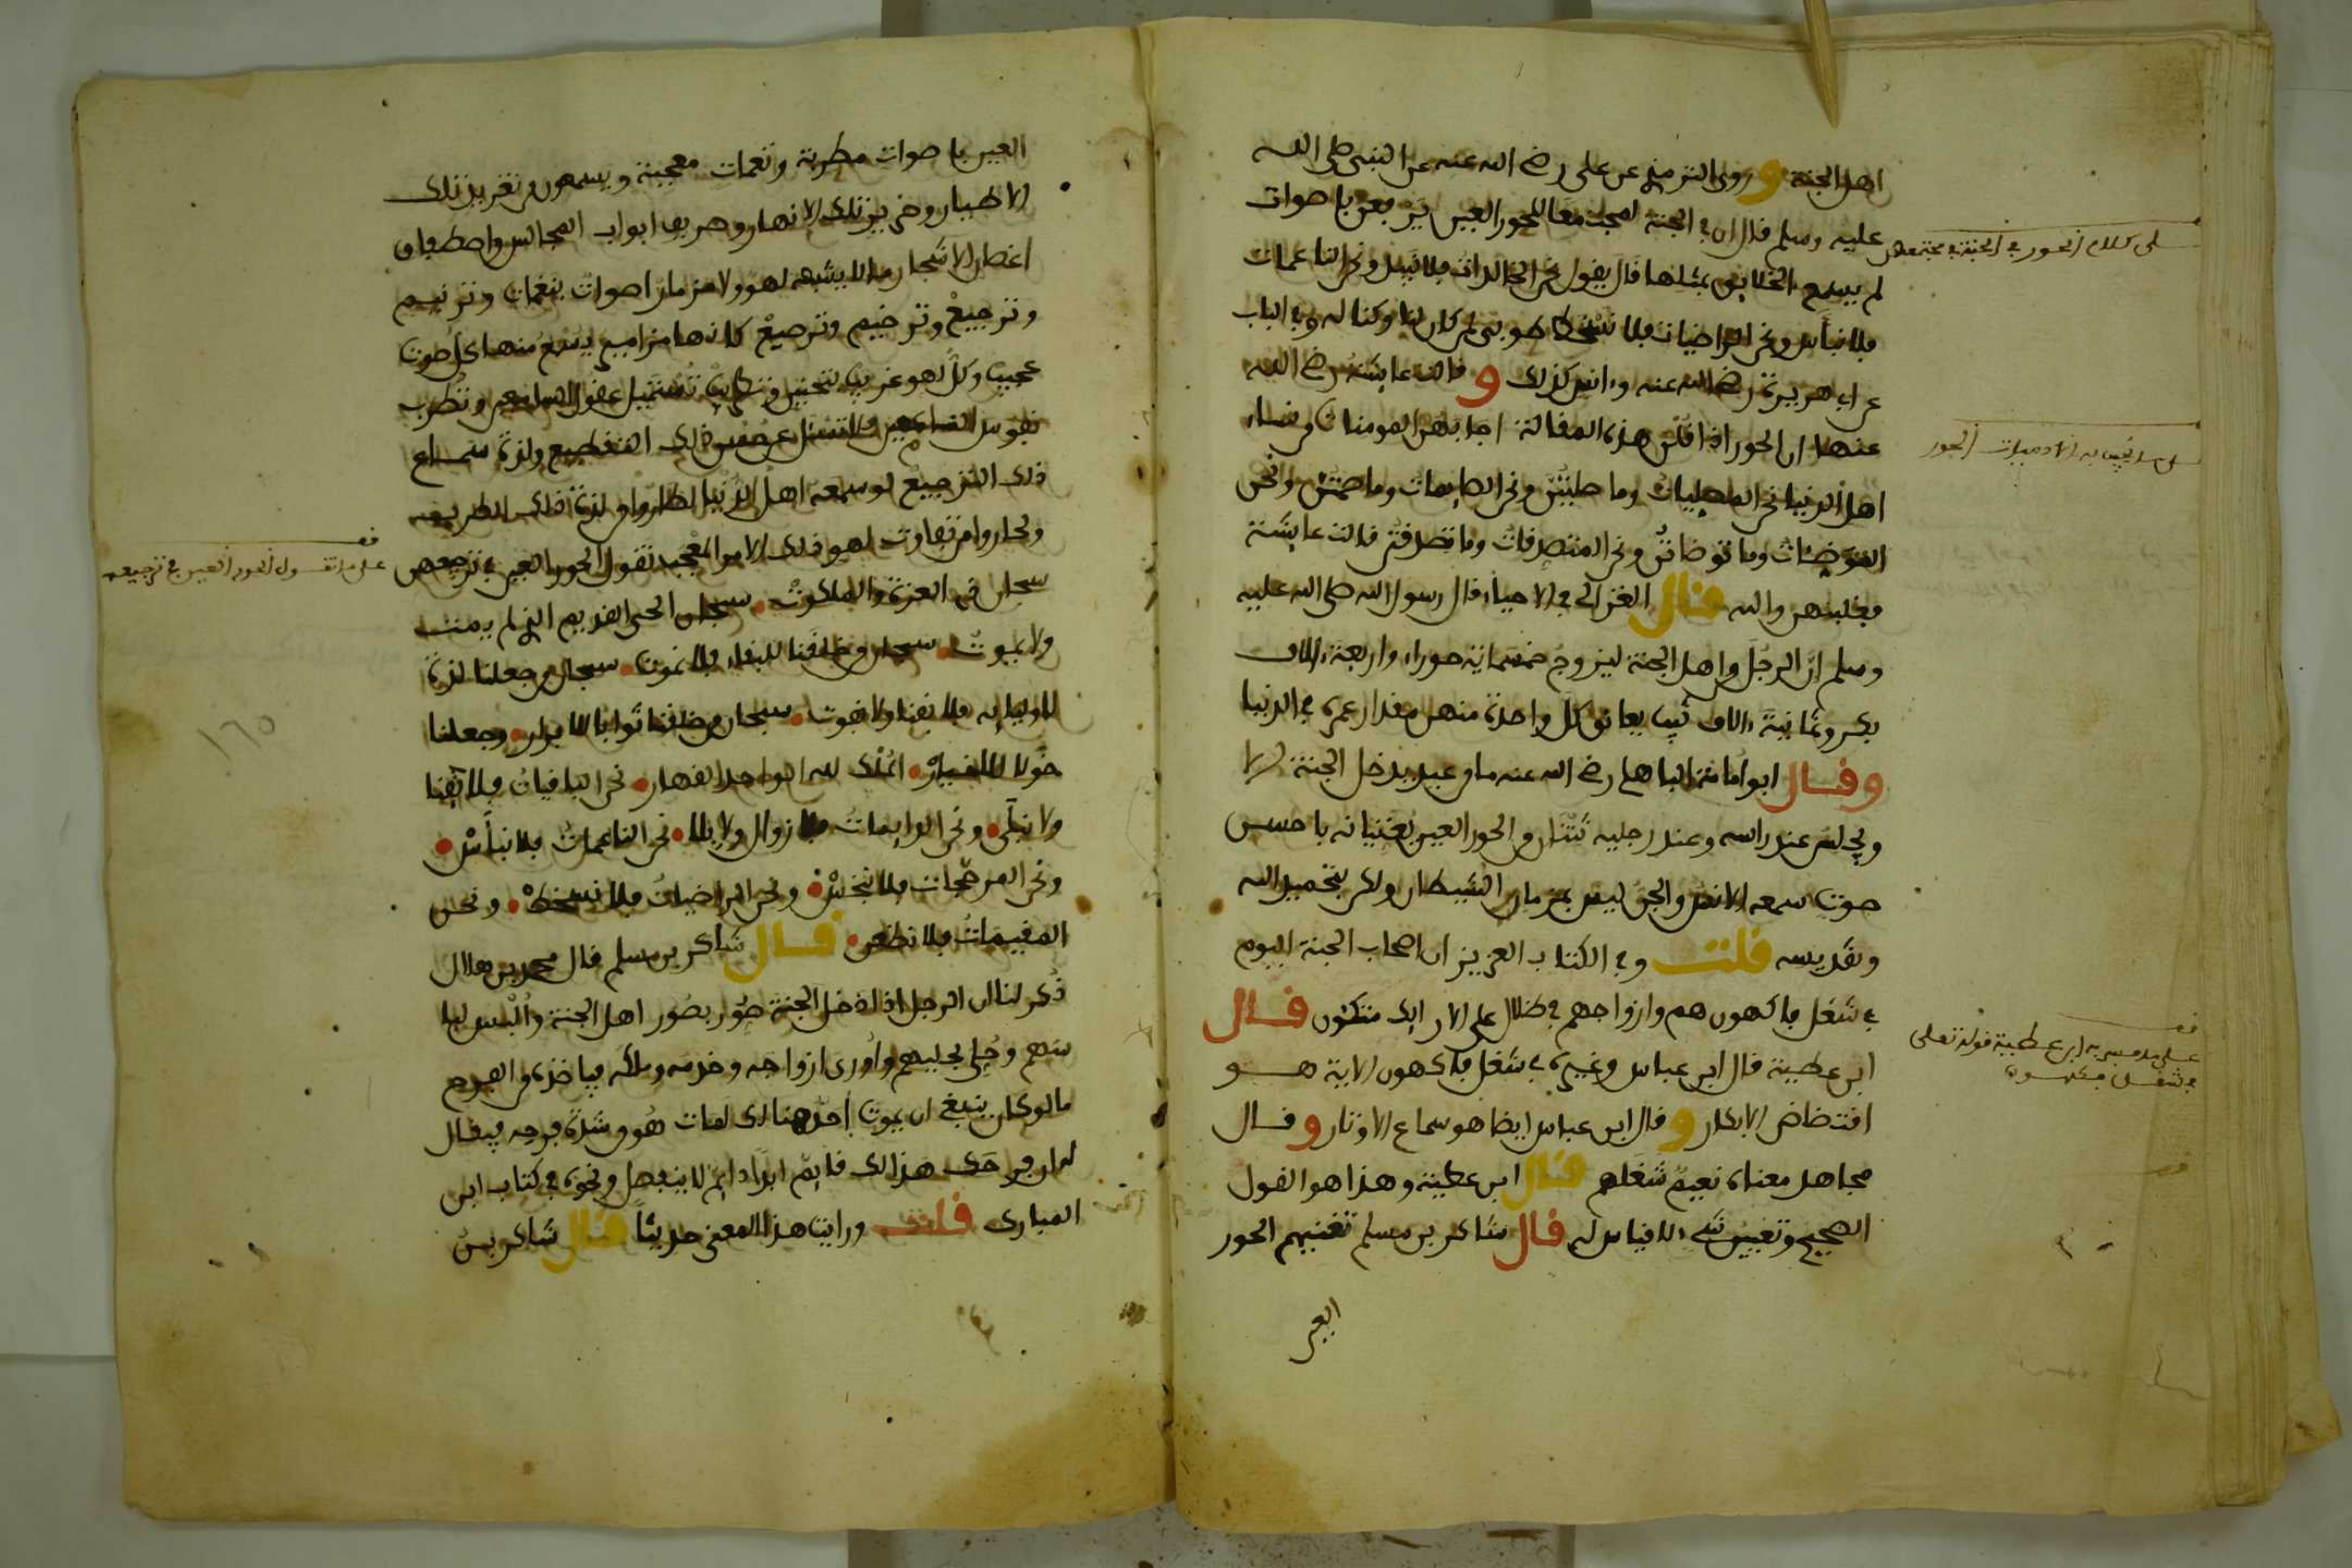 اهل الجنة وروى الترمذي عن علي رضي الله عنه عن النبي صلى الله
عليه وسلم قال ان في الجنة لمجتمعا للحور العين يرفعن باصوات
لم يسمع الخلايق بمثلها قال يقول نحن الخالدات فلا نبيد ونحن الناعمات
فلا نبأس ونحن الراضيات فلا نسخط طوبى لمن كان لنا وكنا له وفي الباب
عن ابي هريرة رضي الله عنه وانس كذلك وقالت عايشة رضي الله
عنها ان الحور اذا قلن هذه المقالة اجابهن المومنات من نساء
اهل الدنيا نحن المصليات وما صليتن ونحن الصايمات وما صمتن ونحن
المتوضئات وما توضاتن ونحن المتصدقات وما تصدقتن قالت عايشة
فغلبنهن والله قال الغزالي في الاحياء قال رسول الله صلى الله عليه
وسلم ان الرجل من اهل الجنة ليزوج خمسماية حوراء واربعة ءالاف
بكر وثمانية ءالاف ثيب يعانق كل واحدة منهن مقدار عمره في الدنيا
وقال ابو امامة الباهلي رضي الله عنه ما من عبد يدخل الجنة الا
ويجلس عند راسه وعند رجليه ثنتان من الحور العين يغنيانه باحسن
صوت سمعه الانس والجن ليس بمزمار الشيطان ولكن بتحميد الله
وتقديسه قلت وفي الكتاب العزيز ان اصحاب الجنة اليوم
في شغل فاكهون هم وازواجهم في ظلال على الارايك متكئون قال
ابن عطية قال ابن عباس وغيره في شغل فاكهون الاية هو
افتضاض الابكار وقال ابن عباس ايضا هو سماع الاوتار وقال
مجاهد معناه نعيم شغلهم قال ابن عطية وهذا هو القول
الصحيح وتعيين شيء لا قياس له قال شاكر بن مسلم تغنيهم الحور
العين
على كلام الحور في الجنة في مجتمعهن
الادميات الحور
قف
على ما فسر به ابن عطية قوله تعلى
في شغل فكهون
العين باصوات مطربة ونغمات معجبة ويسمعون من تغريد تلك
الاطيار وخرير تلك الانهار وصريف ابواب المجالس واصطفاق
اغصان الاشجار ما لا يشبهه لهو ولا مزمار اصوات بنغمات وترنيم
وترجيع وترخيم وترصيع كانها مزامير يسمع منها كل صوت
عجيب وكل لهو غريب بتحنين وتطريب تستميل عقول السامعين وتطرب
نفوس ذلك التقطيع ولذة سماع
ذلك الترجيع لو سمعه اهل الدنيا لطاروا من لذة ذلك الطريف
ولحاروا من تفاوت لهو ذلك الامر المعجب تقول الحور العين في ترجيعهن
سبحان ذي العزة والملكوت سبحان الحي القديم الذي لم يمت
ولا يموت سبحان من خلقنا للبقاء فلا نموت سبحان من جعلنا لذة
لاوليايه فلا نفنا ولا نفوت سبحان من خلقنا ثوابا للابرار وجعلنا
خولا للاخيار الملك لله الواحد القهار نحن الباقيات فلا نفنا
ولا نبلى ونحن الدايمات فلا زوال ولا بلا نحن الناعمات فلا نبأس
ونحن فلا نبخس ونحن الراضيات فلا نسخط ونحن
المقيمات فلا نظعن قال شاكر بن مسلم قال محمد بن هلال
ذكر لنا ان الرجل اذا دخل الجنة صور بصور اهل الجنة والبس لبا
سهم وحلي بحليهم واوري ازواجه وخدمه وملكه فياخذه من الفرح
ما لو كان ينبغي ان يموت احد هنالك لمات هو من شدة فرحه فيقال
له ان فرحك هذا لك قايم ابدا دايم لا ينفصل ونحوه في كتاب ابن
المبارك قلت ورايت هذا المعنى حديثا قال شاكر بن
قف
على ما تقول الحور العين في ترجيعهن
١٦٥